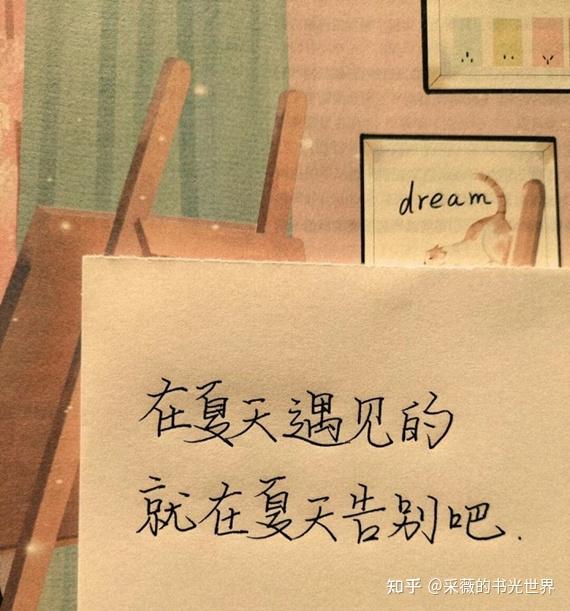 dream
在夏天遇见的
就在夏天告别吧.
知乎 @采薇的书光世界